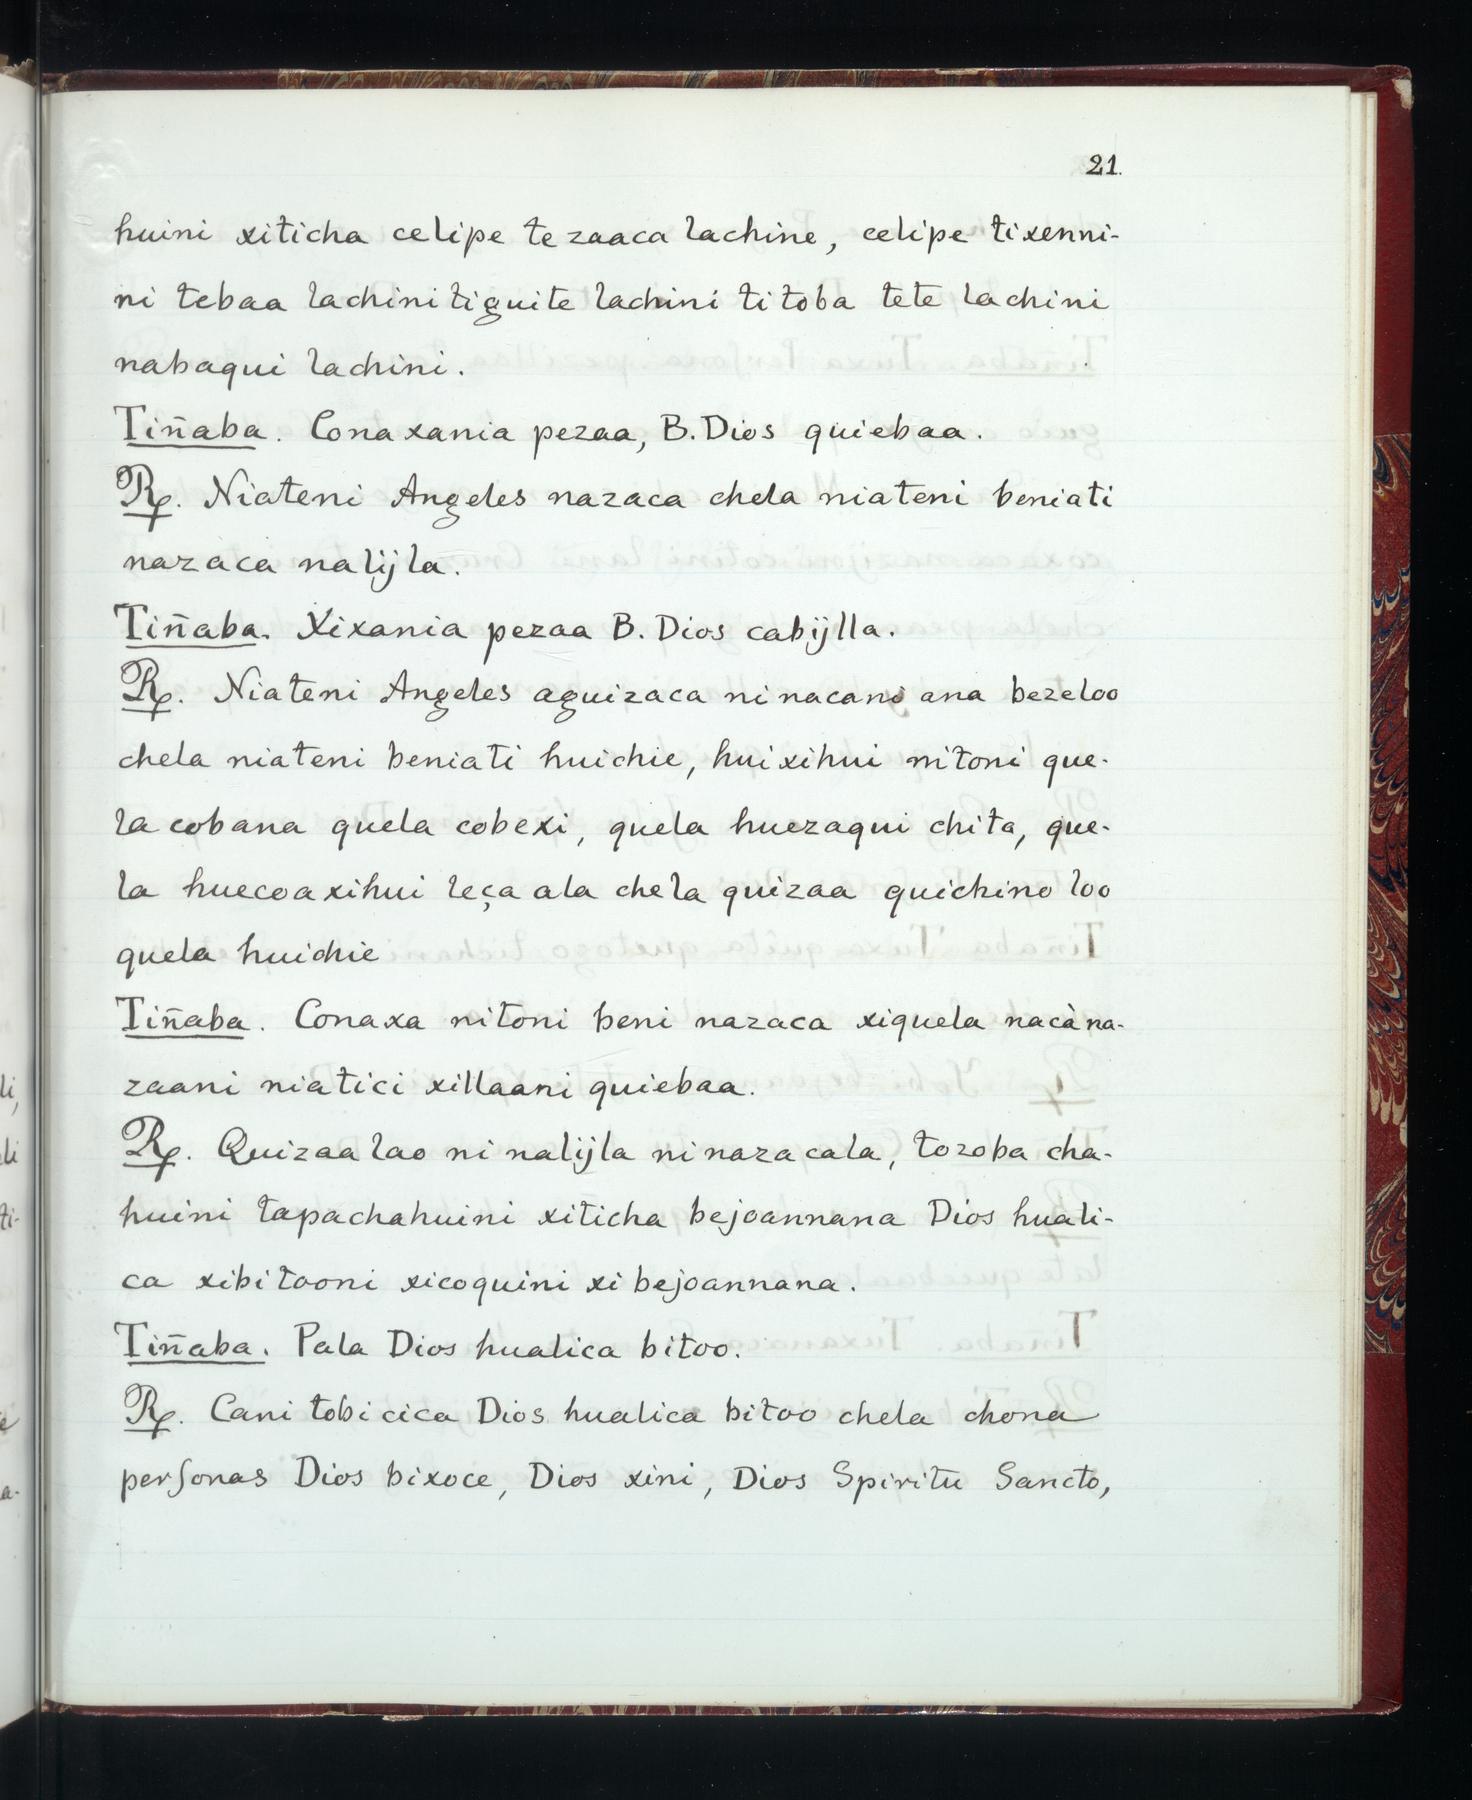 21.
huini xiticha celipe tezaaca lachine, celipe tixenni-
ni tebaa lachini tiguite lachini titoba tete lachini
nabaqui lachini.
Tiñaba. Conaxania pezaa, B. Dios quiebaa.
℞. Niateni Angeles nazaca chela niateni beniati
nazaca nalijla.
Tiñaba. Xixania pezaa B. Dios cabijlla.
℞. Niateni Angeles aguizaca ni nacani ana bezeloo
chela niateni beniati huichie, huixihui nitoni que-
la cobana quela cobexi, quela huezaqui chita, que-
la huecoaxihui leça ala chela quizaa quichino loo
quela huichie
Tiñaba. Conaxa nitoni beni nazaca xiquela nacàna-
zaani niatici xillaani quiebaa.
℞. Quizaa lao ni nalijla ni nazacala, tozoba cha-
huini tapachahuini xiticha bejoannana Dios huali-
ca xibitooni xicoquini xibejoannana.
Tiñaba. Pala Dios hualica bitoo.
℞. Cani tobicica Dios hualica bitoo chela chona
perſonas Dios bixoce, Dios xini, Dios Spiritu Sancto,